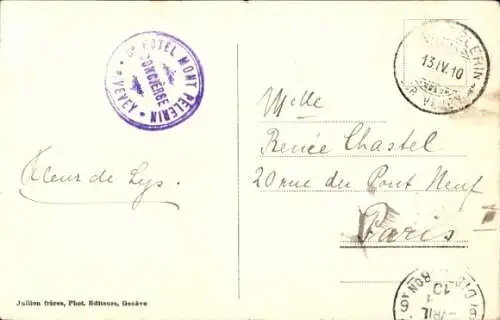 Gd HOTEL MONT PELERIN
CONCIERGE
* VEVEY *
PELERIN
13.IV.10
Fleur de Lys.
Mlle
Renée Chastel
20 rue du Pont Neuf
Paris
Jullien frères, Phot. Editeurs, Genève